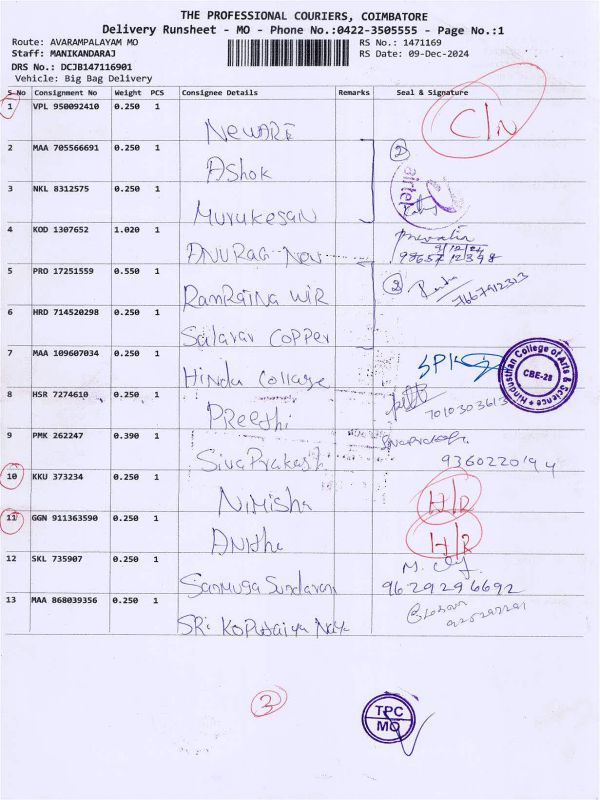 THE PROFESSIONAL COURIERS, COIMBATORE
Delivery Runsheet - MO - Phone No.:0422-3505555 - Page No.:1
Route: AVARAMPALAYAM MO RS No.: 1471169
Staff: MANIKANDARAJ RS Date: 09-Dec-2024
DRS No.: DCJB147116901
Vehicle: Big Bag Delivery
S No Consignment No Weight PCS Consignee Details Remarks Seal & Signature
1 VPL 950092410 0.250 1
C/N
2 MAA 705566691 0.250 1 2
Ashok
airtel
3 NKL 8312575 0.250 1
Murukesan
4 KOD 1307652 1.020 1
ANURAG
9/12/24
5 PRO 17251559 0.550 1
2
7667912313
Ramratna wir
6 HRD 714520298 0.250 1
Salarar Copper
7 MAA 109607034 0.250 1
Hindu Collage
Hindusthan College of Arts & Science
CBE-28
8 HSR 7274610 0.250 1
7010303613
Preethi
9 PMK 262247 0.390 1
Sivaprakash
10 KKU 373234 0.250 1
Nimisha
11 GGN 911363590 0.250 1
12 SKL 735907 0.250 1
Sanmuga Sundaram 9629296692
13 MAA 868039356 0.250 1
Sri
3
TPC
MO